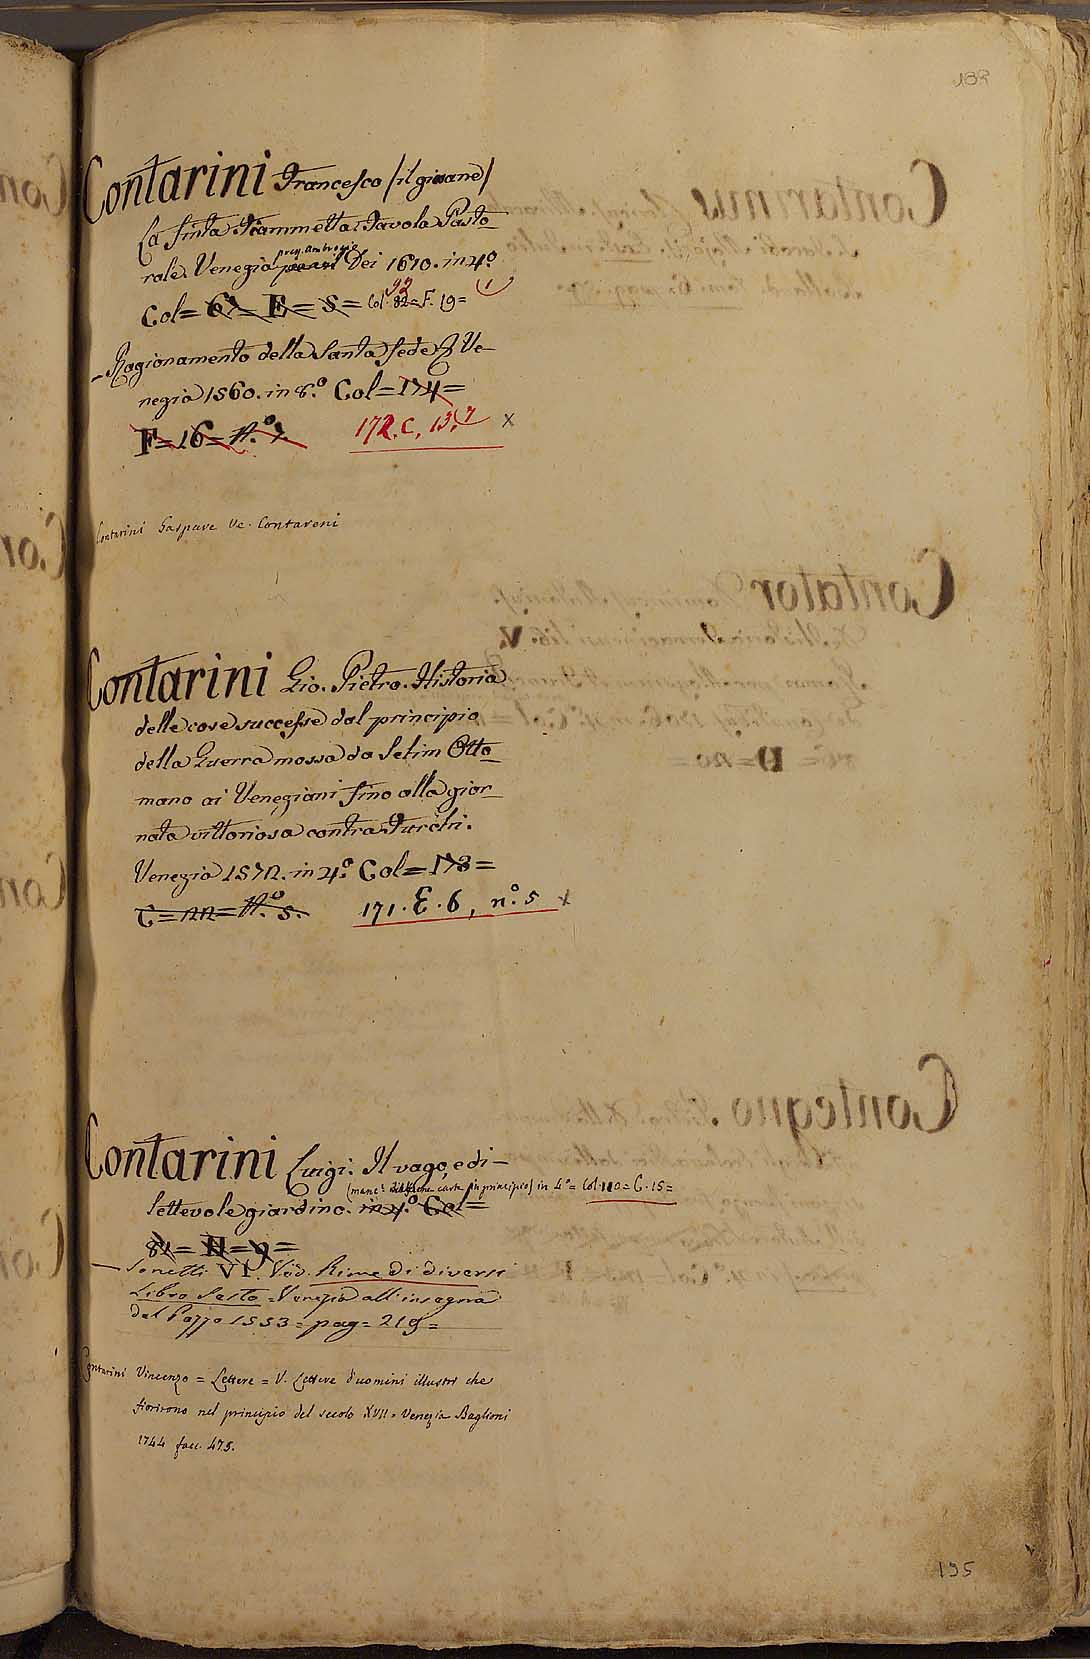 133
Contarini Francesco /il giovane/
La finta Fiammetta Favola Pasto-
rale. Venezia presso Ambrogio Dei 1610. in 4.º
Col= 67= E= S= Col. 82= 92 F. 19= (1
- Ragionamento della Santa fede & Ve-
negia 1560. in 8.º Col= 174=
F= 16= N.º 7. 172. C. 13.7 x
Contarini Gaspare Ve. Contareni
Contarini Gio. Pietro. Historia
delle cose successe dal principio
della Guerra mossa da Selim Otto-
mano ai Veneziani fino alla gior-
nata vittoriosa contra Turchi.
Venezia 1572. in 4.º Col= 178=
C= 22= N.º 5. 171. E. 6, n.º 5 x
Contarini Luigi. Il vago, e di-
(manc. carte in principio) in 4º= Col. 110= C. 15=
lettevole giardino. in 4.º Col=
82= H= 9=
— Sonetti VI. Ved. Rime di diversi
Libro Sesto= Venezia all'insegna
del Pozzo 1553= pag= 219=
Contarini Vincenzo = Lettere = V. Lettere d'uomini illustri che
fiorirono nel principio del secolo XVII. Venezia Baglioni
1744 facc. 475.
195